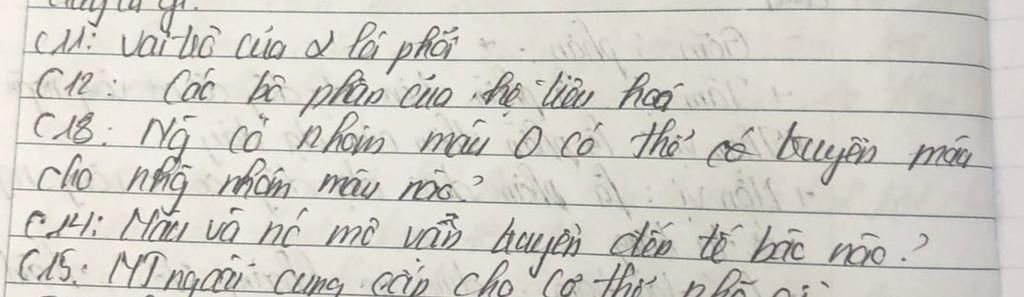 C11: vai trò của 2 lá phổi
C12: Các bộ phận của hệ tiêu hoá
C13: Ng có nhóm máu O có thể có truyền máu
cho nhg nhóm máu nào?
C14: Máu và nc mô vận truyền đến tế bào nào?
C15: MT ngoài cung cấp cho cơ thể